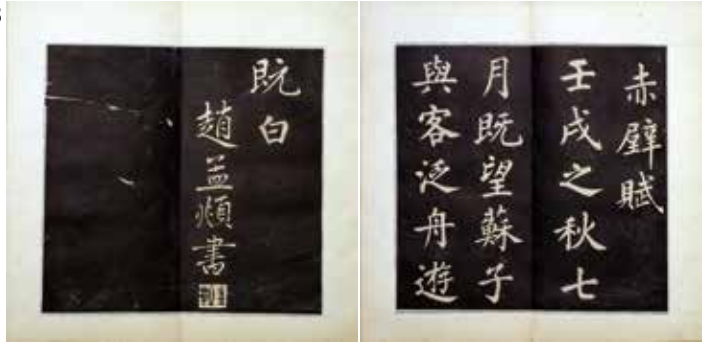 赤壁賦
壬戌之秋七
月既望蘇子
與客泛舟遊
既白
趙孟頫書